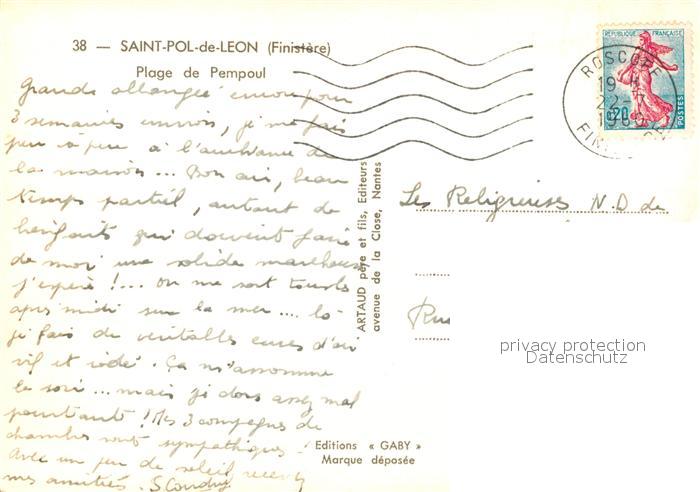 38 — SAINT-POL-de-LEON (Finistère)
Plage de Pempoul
Grande allongée encore pour
3 semaines environ, je me fais
peu à peu à l'ambiance de
la maison... Bon air, beau
temps partiel, autant de
bienfaits qui doivent faire
de moi une solide
j'espère !... On me sort tous les
après midi sur la mer.... là
je fais de véritables cures d'air
vif et iodé. Ça m'assomme
le soir... mais je dors assez mal
pourtant ! Mes 3 compagnes de
chambre sont sympathiques
Avec un peu de soleil recevez
mes amitiés.
ARTAUD père et fils, Editeurs
avenue de la Close, Nantes
Editions « GABY »
Marque déposée
REPUBLIQUE FRANÇAISE
0,20
POSTES
ROSCOFF
19-H
22-7
1960
Les Religieuses N.D de
Rue
privacy protection
Datenschutz